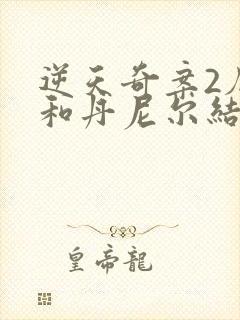 逆天奇案2
和丹尼尔結
皇帝龍